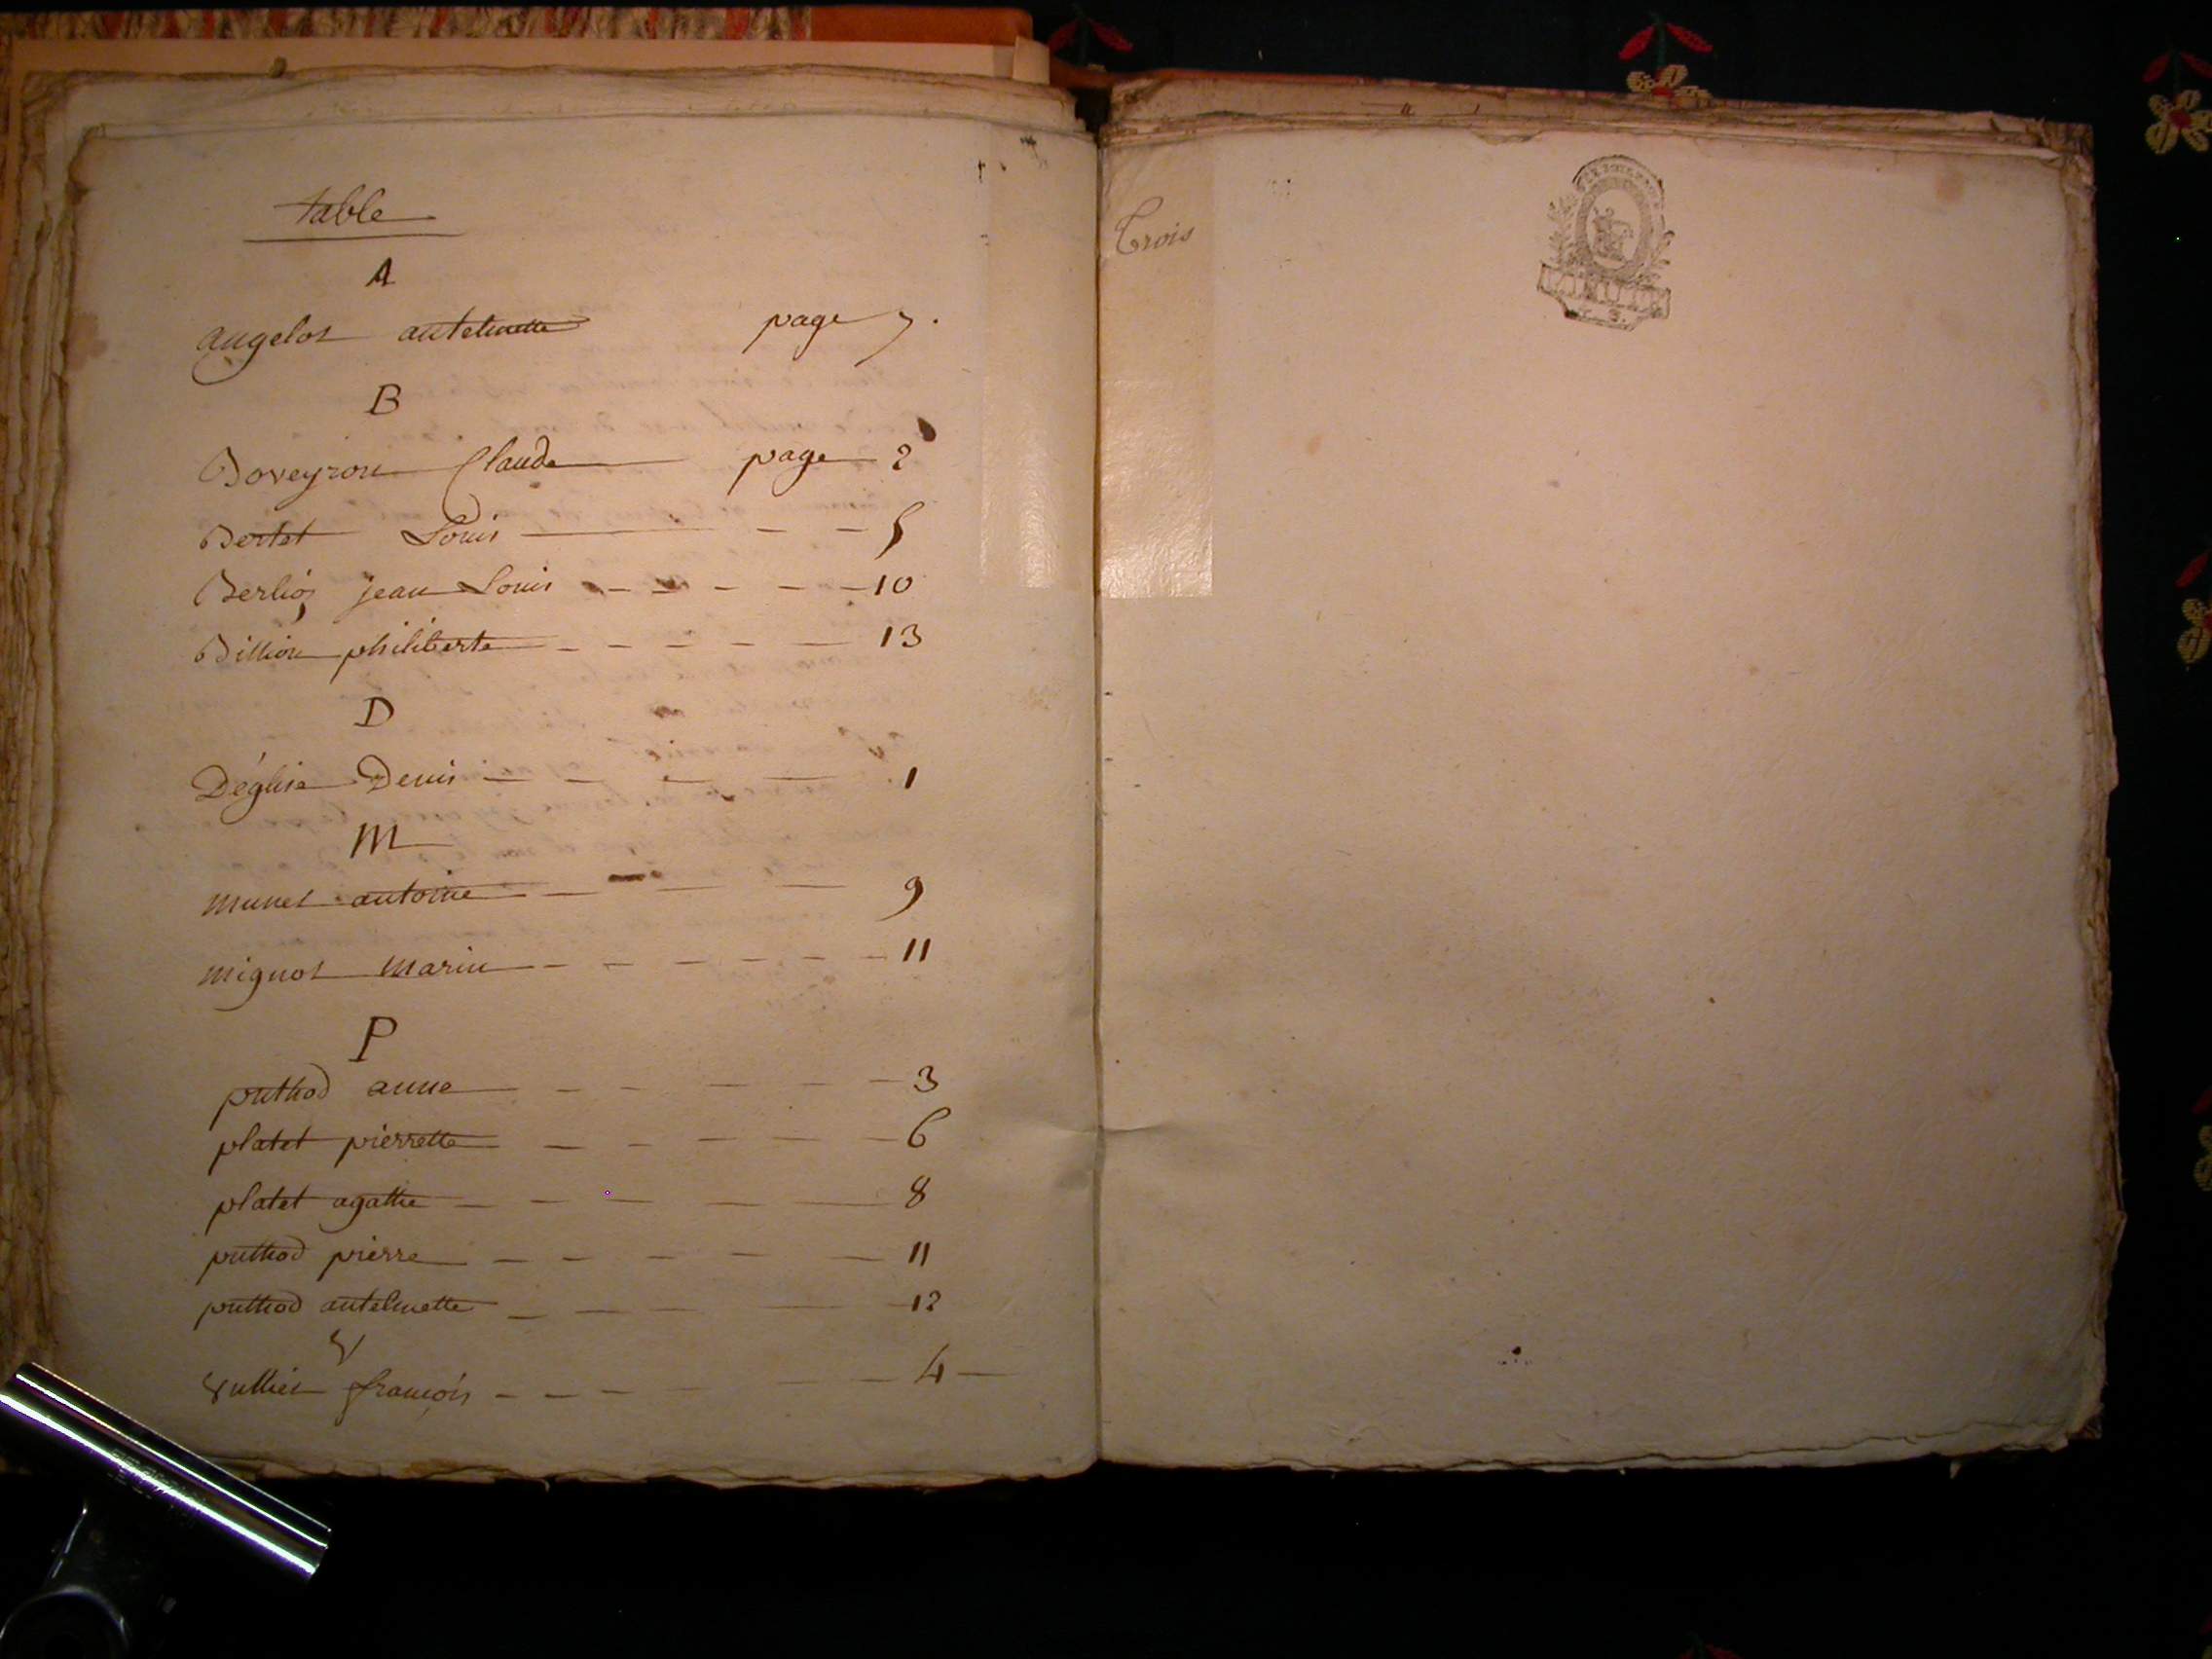 table
A
angelot antelmette page 7.
B
Boveyron Claude page 2
Bertet Louis 5
Berlioz jean Louis 10
Billion philiberte 13
D
Déglise Denis 1
M
munet antoine 9
mignot marin 11
P
puthod anne 3
platet pierrette 6
platet agathe 8
puthod pierre 11
puthod antelmette 12
V
Vulliet françois 4
Trois